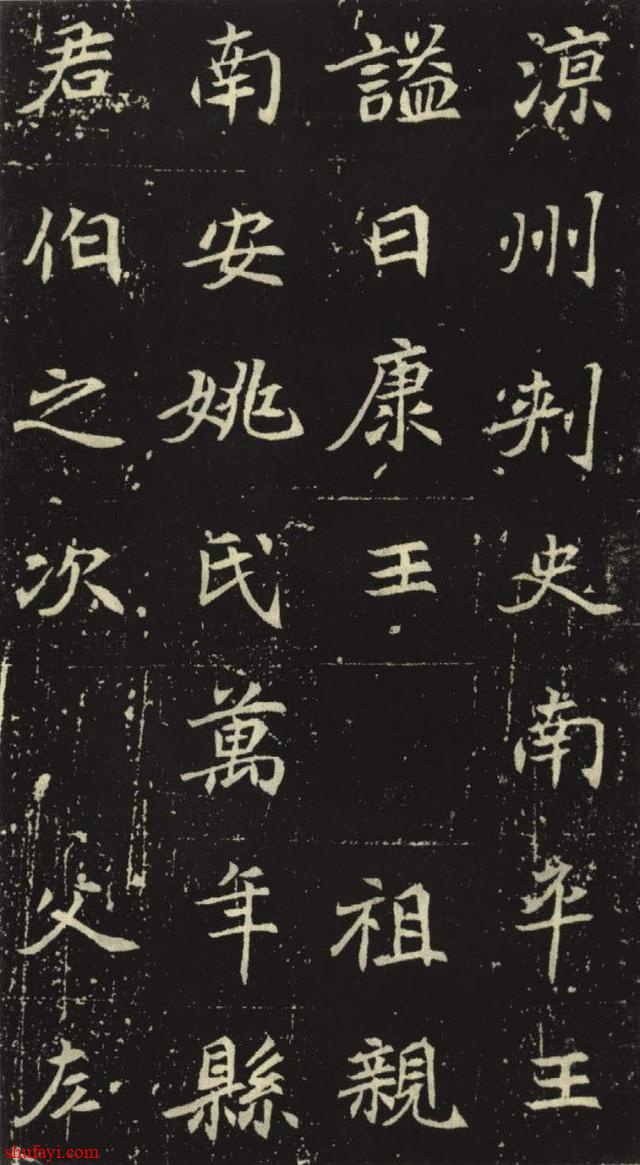 涼州刺史南平王
謚曰康王 祖親
南安姚氏萬年縣
君伯之次 父左
shufayi.com